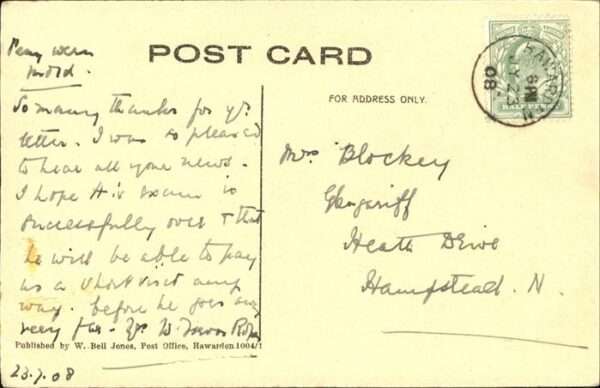 Peny wern
Mold.
POST CARD
FOR ADDRESS ONLY.
So many thanks for yr.
letter. I was so pleased
to hear all your news.
I hope A's exam is
successfully over & that
he will be able to pay
us a short visit any
way. before he goes away
very far. Yrs W. Trevor Roper
Published by W. Bell Jones, Post Office, Hawarden 1004/1
23.7.08
Mrs Blockey
Glengariff
Heath Drive
Hampstead. N.
HAWARDEN
6 PM
JY 23
08
HALF PENNY